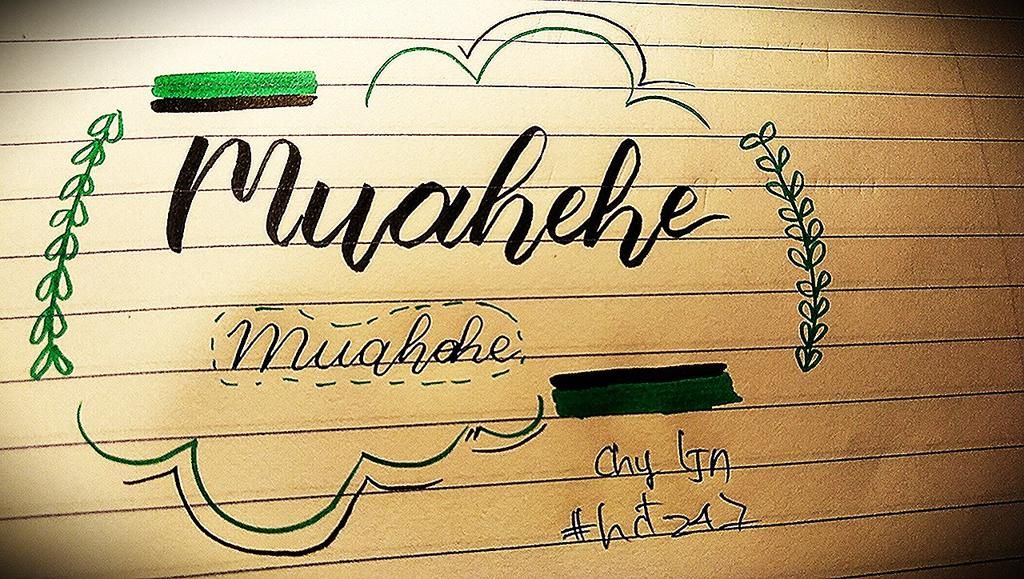 Muahehe
Muahehe
Chy
#hdt247